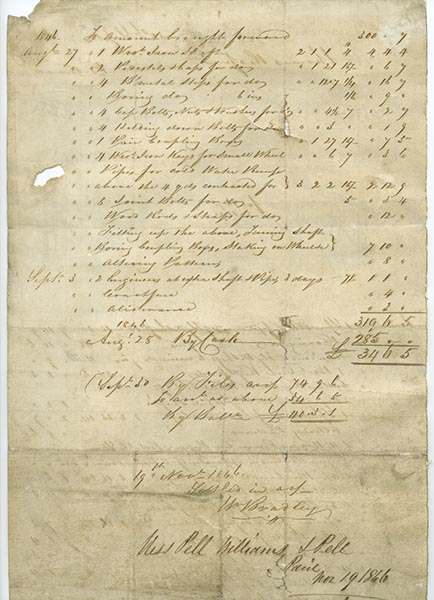 1846. To amount brought forward 300 " 7
Augt 27 " 1 Wrot Iron Shaft 2 1 1 4 4 4 4
" " 2 Pedestals Shaps for do " 1 21 " 6 7
" " 4 B metal Steps for do
" " Boring do 6 ins " 9 "
" " 4 Cap Bolts, Nuts & Washers for do " 2 7
" " 4 Holding down Bolts for do " " 3 " " 1 9
" " 1 Pair Coupling Boxes " 1 27 " 7 5
" " 4 Wrot Iron Keys for Small Wheel " " 6 7 " 3 6
" " Pipes for cold Water Pump
" " above the 4 yds contracted for } 3 2 2 2 12 9
" " 6 Joint Bolts for do 5 " 5 4
" " Wood Rods & Straps for do " 12 "
" " Fitting up the above, Turning Shaft
" " Boring Coupling Boxes, Staking on Wheels } 7 10 "
" " Altering Pattern " 8 "
Septr 3 " 2 Engineers at extra Shaft & Pipes 3 days 7/ 1 1 "
" " Coach fare " 4 "
" " Allowance " 3 "
1846 319 6 5
Augt 28 By Cash 285 " "
£ 34 6 5
(Septr 30 By Files as pr 74 9 6
To amt as above 34 6 5
By Balce £ 40 3 1
19th Novr 1846.
Settled in as pr
Wm Bradley
Mess Pell Williams & Pell
Paid
Nov 19 1846